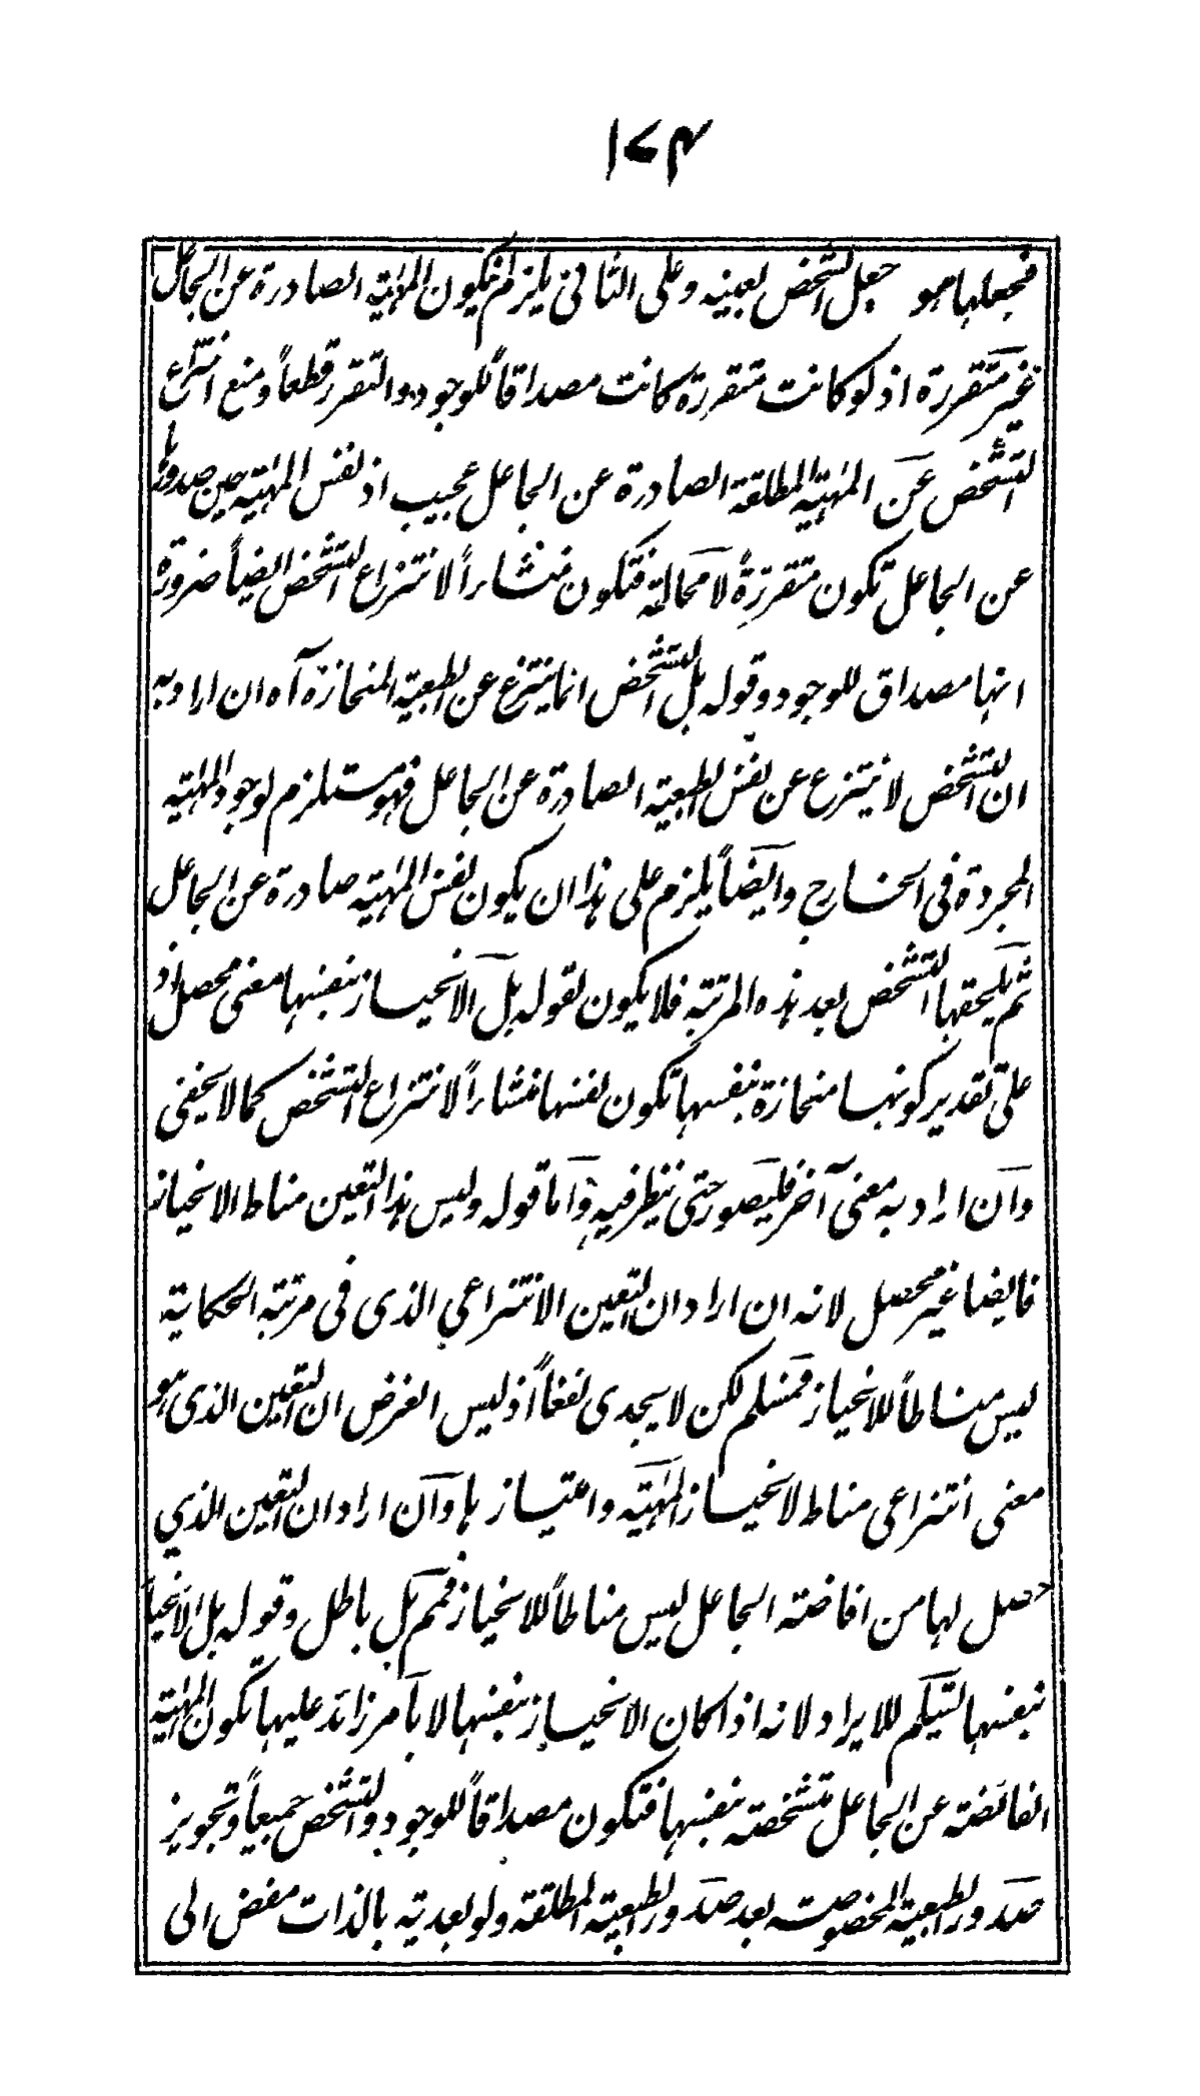 ١٧٤
فجعلها هو جعل الشخص بعينه وعلى الثاني يلزم ان يكون المهية الصادرة عن الجاعل
غير متقررة اذ لو كانت متقررة كانت مصداقاً للوجود والتقرر قطعاً ومنع انتزاع
التشخص عن المهية المطلقة الصادرة عن الجاعل عجيب اذ نفس المهية حين صدورها
عن الجاعل تكون متقررةً لا محالة فتكون منشاراً لانتزاع التشخص ايضاً ضرورة
انها مصداق للوجود وقوله بل التشخص انما ينتزع عن الطبعية المنحازة آه ان اراد به
ان التشخص لا ينتزع عن نفس الطبعية الصادرة عن الجاعل فهو مستلزم لوجود المهية
المجردة في الخارج وايضاً يلزم على هذا ان يكون نفس المهية صادرة عن الجاعل
ثم يلحقها التشخص بعد هذه المرتبة فلا يكون لقوله بل الانحياز بنفسها معنى محصل اذ
على تقدير كونها منحازة بنفسها تكون نفسها منشاراً لانتزاع التشخص كما لا يخفى
وان اراد به معنى آخر فليصور حتى ينظر فيه واما قوله وليس هذا التعين مناط الانحياز
فايضا غير محصل لانه ان اراد ان التعين الانتزاعي الذي في مرتبة الحكاية
ليس مناطاً للانحياز فمسلم لكن لا يجدى نفعاً اذ ليس الغرض ان التعين الذي هو
معنى انتزاعى مناط لانحياز المهية وامتيازها وان اراد ان التعين الذي
حصل لها من افاضة الجاعل ليس مناطاً للانحياز فمم بل باطل وقوله بل الانحياز
بنفسها تسليم للايراد لانه اذا كان الانحياز بنفسها لا بامر زائد عليها تكون المهية
الفائضة عن الجاعل متشخصة بنفسها فتكون مصداقاً للوجود والتشخص جميعاً وتجويز
صدور الطبعية المخصوصة بعد صدور الطبعية المطلقة ولو بعدية بالذات مفض الى